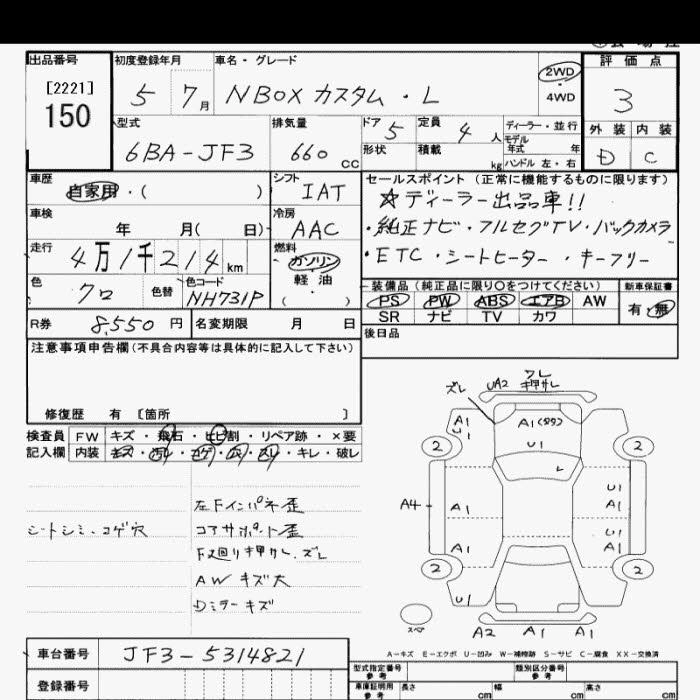 出品番号 初度登録年月 車名・グレード 評価点
[2221]
150 5 7月 NBOX カスタム・L 2WD 4WD 3
型式 排気量 ドア 5 定員 4人 ディーラー・並行 外装 内装
6BA-JF3 660cc 形状 積載 kg モデル年式 年 ハンドル 左・右 D C
車歴 自家用・( ) シフト IAT セールスポイント (正常に機能するものに限ります)
☆ディーラー出品車!!
車検 年 月( 日) 冷房 AAC ・純正ナビ・フルセグTV・バックカメラ
走行 4万1千214km 燃料 ガソリン 軽油 ( ) ・ETC・シートヒーター・キーフリー
色 クロ 色替 色コード NH731P 装備品 (純正品に限り○をつけてください) 新車保証書
PS PW ABS エアB AW 有・無
SR ナビ TV カワ
R券 8,550円 名変期限 月 日 後日品
注意事項申告欄(不具合内容等は具体的に記入して下さい)
修復歴 有 〔箇所 〕
検査員 FW キズ・飛石・ヒビ割・リペア跡・×要
記入欄 内装 キズ・汚レ・コゲ・穴・スレ・キレ・破レ
左Fインパネ歪
シートシミ・コゲ穴 コアサポート歪
下廻り押サレ、ズレ
AW キズ大
Dミラーキズ
ズレ UA2 ワレ 押サレ
A1 U1 A1 U1
2 2
A4 A1 U1 A1
A1 U1 A1
2 2
U1
スペア A2 A1 A1
A-キズ E-エクボ U-凹み W-補修跡 S-サビ C-腐食 XX-交換済
車台番号 JF3-5314821
登録番号
型式指定番号 参考 類別区分番号 参考
車庫証明用 参考 長さ cm 幅 cm 高さ cm